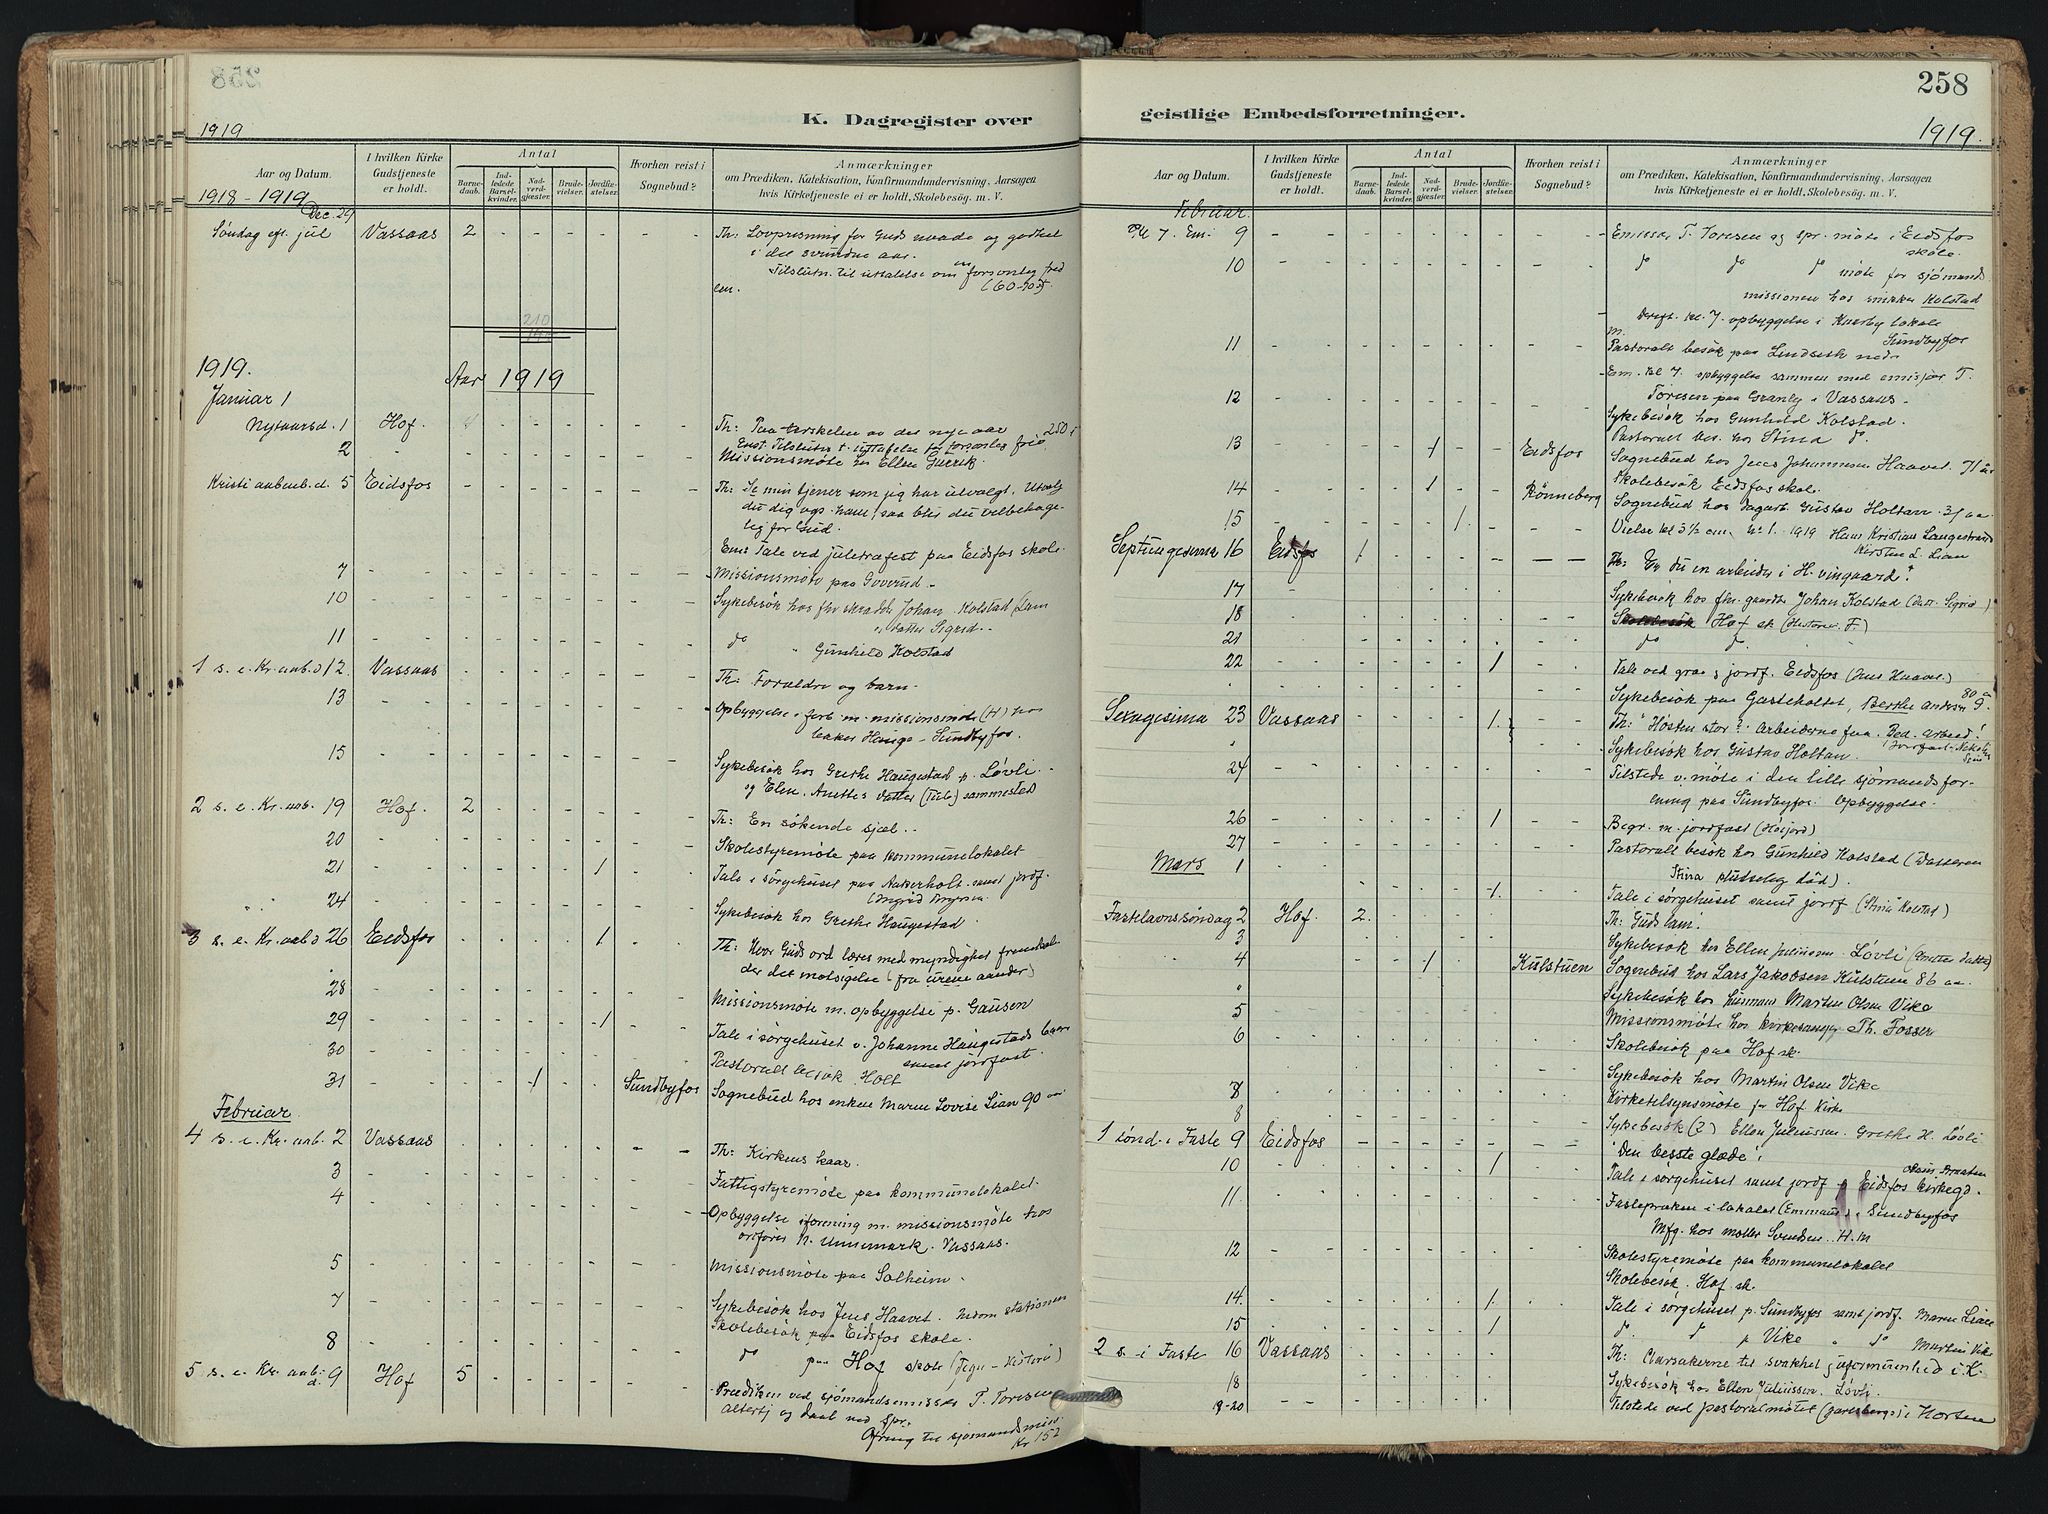 258
K. Dagregister over
geistlige Embedsforretninger.
1919
1919.
Aar og Datum.
I hvilken Kirke Gudstjeneste er holdt.
Antal
Barnedaab.
Indledede Barselkvinder.
Nadverdgjester.
Brudevielser.
Jordfæstelser.
Hvorhen reist i Sognebud?
Anmærkninger
om Prædiken, Katekisation, Konfirmandundervisning, Aarsagen
hvis Kirketjeneste ei er holdt, Skolebesøg. m. V.
1918 - 1919
Dec. 29
Søndag eft. jul Vassaas 2 Th: Lovprisning for Guds naade og godhet
i det svundne aar.
Tilslutn. til uttalelse om en forsonlig fred
em. (60-70)
210
1919.
Aar 1919
Januar 1
Nytaarsd. 1 Hof. Th: Paa terskelen av det nye aar 250
2 Missionsmøte hos Ellen
Kristi aabenb. d. 5 Eidsfos Th: Se min tjener som jeg har utvalgt. Utvalg
du dig ogs. ham, saa blir du velbehage-
lig for Gud.
Em: Tale ved juletræfest paa Eidsfos skole.
7 Missionsmøte paa Goverud
10 Sykebesøk hos fhv skrædder Johan Kolstad
datter Sigrid
11 do Gunhild Kolstad
1 s. e. Kr. aab. d 12. Vassaas Th: Forældre og barn.
13 Opbyggelse i forb. m. missionsmøte (H) hos
baker Hauge - Sundbyfos.
15 Sykebesøk hos Grethe Haugestad p. Løvli
og Elen. Anettes datter sammested
2 s. e. Kr. aab. 19 Hof. 2 Th: En søkende sjæl.
20 Skolestyremøte paa kommunelokalet
21 1 Tale i sørgehuset paa Aakerholt samt jordf.
24 Sykebesøk hos Grethe Haugestad
3 s. e. Kr. aab d 26 Eidsfos 1 Th: Hvor Guds ord læres med myndighet fremkal-
der det motsigelse (fra urene aander)
28 Missionsmøte m. opbyggelse p. Gausen
29 1 Tale i sørgehuset v. Johanne Haugestads baare
samt jordfæst.
30 Pastoralt besøk Holt
31 1 Sundbyfos Sognebud hos enken Maren Lovise Lian 90 aar
Februar
4 s. e. Kr. aab. 2 Vassaas Th: Kirkens kaar.
3 Fattigstyremøte paa kommunelokalet
4 Opbyggelse i forening m. missionsmøte hos
ordfører N. Unnemark. Vassaas.
5 Missionsmøte paa Solheim
7 Sykebesøk hos Jens Haavet. indom stationen
Skolebesøk paa Eidsfos skole.
8 do paa Hof skole (Tegn - Historie)
5 s. e. Kr. aab. d. 9 Hof 5 Prædiken ved sjømandsemissær T. Toresen
Altertj og daab ved spr.
Ofring til sjømandsmiss.
Kr 152
258
Aar og Datum.
I hvilken Kirke Gudstjeneste er holdt.
Antal
Barnedaab.
Indledede Barselkvinder.
Nadverdgjester.
Brudevielser.
Jordfæstelser.
Hvorhen reist i Sognebud?
Anmærkninger
om Prædiken, Katekisation, Konfirmandundervisning, Aarsagen
hvis Kirketjeneste ei er holdt, Skolebesøg. m. V.
Februar.
Kl 7. Em. 9 Emissær T. Toresen og spr. møte i Eidsfos
skole.
10 do do do møte for sjømands
missionen hos snekker Kolstad
Dereft. kl. 7. opbyggelse i lokale
Sundbyfos
11 Pastoralt besøk paa
Em. Kl 7. opbyggelse sammen med emisær T.
12 Toresen paa Granly i Vassaas.
Sykebesøk hos Gunhild Kolstad.
Pastoralt bes. hos Stina do.
13 1 Eidsfos Sognebud hos Jens Johannesen Haavet. 71 aar
14 1 Rønneberg Skolebesøk Eidsfos skole.
Sognebud hos dagarb. Gustav Holtan. 31 aa.
15 1. Vielse kl 3½ em. No 1. 1919 Hans Kristian Langestrand
Kirsten L. Lian
Septuagesima 16 Eidsfos 1 Th: Er du en arbeider i H. vingaard?
17 Sykebesøk hos fhv. Johan Kolstad (datt. Sigrid)
18 Skolebesøk Hof sk (Historie. F.)
21 do do
22 1 Tale ved grav og jordf. Eidsfos (Jens Haavet.)
Sykebesøk paa Gasteholtet, Berthe Andersen 80 a
Sexagesima 23 Vassaas 1. Th: "Høsten stor"? - Arbeiderne faa. Bed. Arbeid!
Sykebesøk hos Gustav Holtan.
24 Tilstede v. møte i den lille sjømandsfor-
ening paa Sundbyfos Opbyggelse.
26 1 Begr. m. jordfæst (Høijord)
27 Pastoralt besøk hos Gunhild Kolstad (Datteren
Stina plutselig død).
Mars 1 1. Tale i sørgehuset samt jordf (Stina Kolstad)
Fastelavnssøndag 2 Hof. 2. Th: Guds lam!
3 Sykebesøk hos Ellen Julinssen. Løvli (Anettes datter)
4 1 Kulstuen Sognebud hos Lars Jakobsen Kulstuen 86 aa.
Sykebesøk hos Martin Olsen Vike
5 Missionsmøte hos kirkesanger Th. Fosser
6 Skolebesøk paa Hof sk.
Sykebesøk hos Martin Olsen Vike
7 Kirketilsynsmøte for Hof Kirke
8 Sykebesøk (2) Ellen Juliussen. Grethe H. Løvli
1 sønd. i Faste 9 Eidsfos "Den beste glæde".
10 1 Tale i sørgehuset samt jordf p Eidsfos kirkegd.
11 Fastepræken i lokalet (Emmaus) Sundbyfos
Mfg. hos møller Svendsen. H. M
12 Skolestyremøte paa kommunelokalet
Skolebesøk. Hof sk.
14. 1. Tale i sørgehuset p. Sundbyfos samt jordf. Maren Lian
15 1 do. do p Vike " do Martin Vike
2 s. i Faste 16 Vassaas Th: Aarsakerne til svakhet i K.
18 Sykebesøk hos Ellen Juliussen. Løvli.
19-20 Tilstede ved pastoralmøtet (Jarlsbergs) i Horten